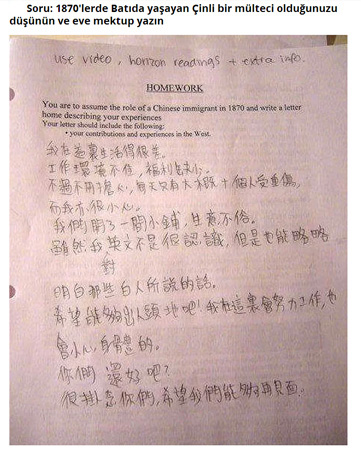 Soru: 1870'lerde Batıda yaşayan Çinli bir mülteci olduğunuzu
düşünün ve eve mektup yazın
use video, horizon readings + extra info.
HOMEWORK
You are to assume the role of a Chinese immigrant in 1870 and write a letter
home describing your experiences
Your letter should include the following:
• your contributions and experiences in the West.
我在這裏生活得很差。
工作環境不佳，福利也缺少。
不過不用擔心，每天只有大概十個人受重傷，
而我亦很小心。
我們開了一間小鋪，生意不俗。
雖然我英文不是很認識，但是也能略略
對
明白那些白人所說的話。
希望能夠出人頭地吧！我在這裏會努力工作，也
會小心身體的。
你們還好吧？
很掛念你們，希望我們能夠再見面。